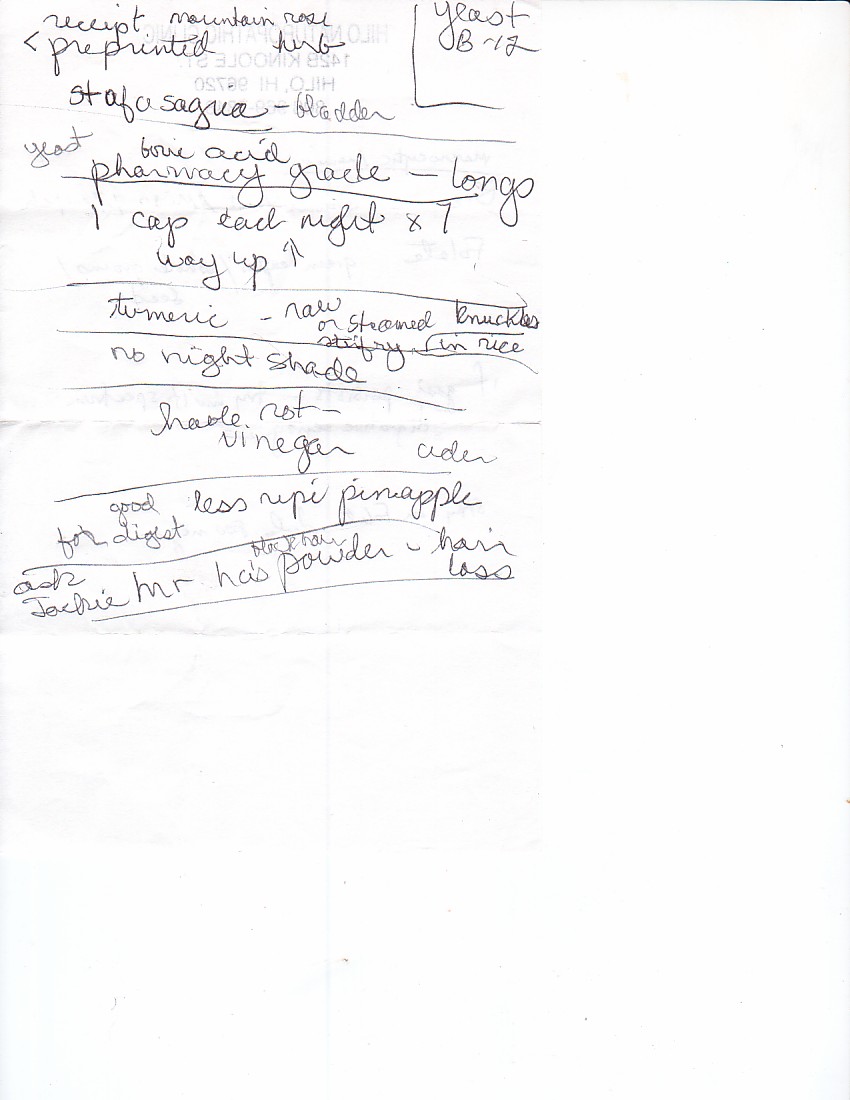 receipt mountain rose
< preprinted herb
yeast
B-12
stafasagua - bladder
yeast boric acid
pharmacy grade - Longs
1 cap each night x 7
way up ↑
tumeric - raw
or steamed knuckles
stirfry in rice
no night shade
haole rot -
vinegar cider
good less ripe pineapple
for digest
black hair
ask Mr has powder - hair
Jackie loss